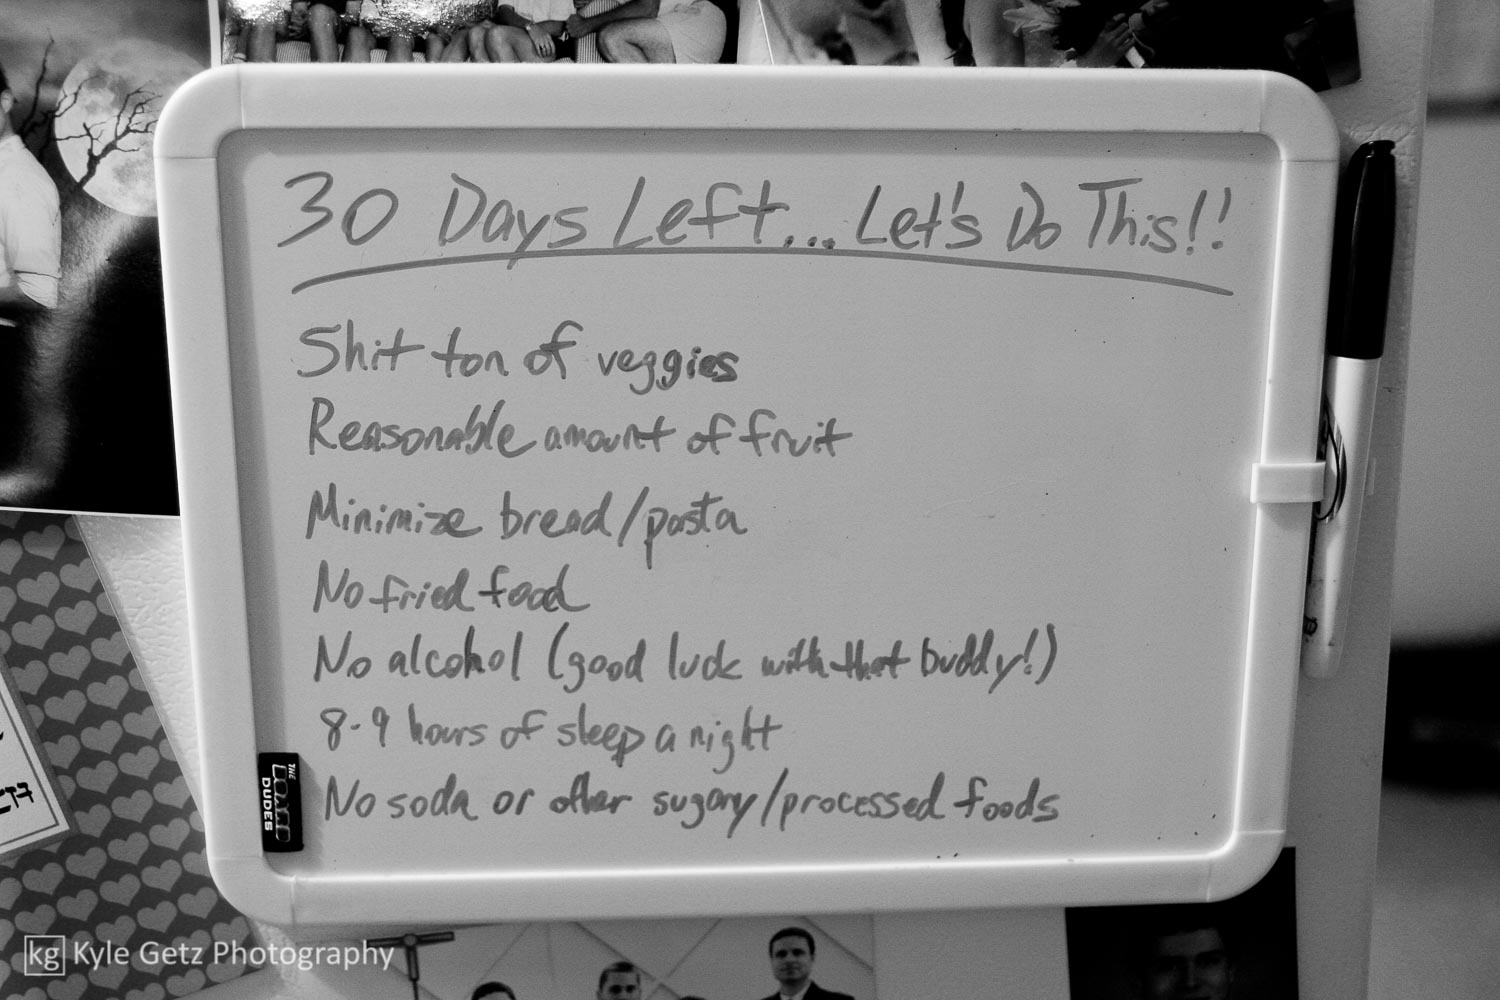 30 Days Left... Let's Do This!!
Shit ton of veggies
Reasonable amount of fruit
Minimize bread/pasta
No fried food
No alcohol (good luck with that buddy!)
8-9 hours of sleep a night
No soda or other sugary/processed foods
THE
BOARD
DUDES
kg Kyle Getz Photography